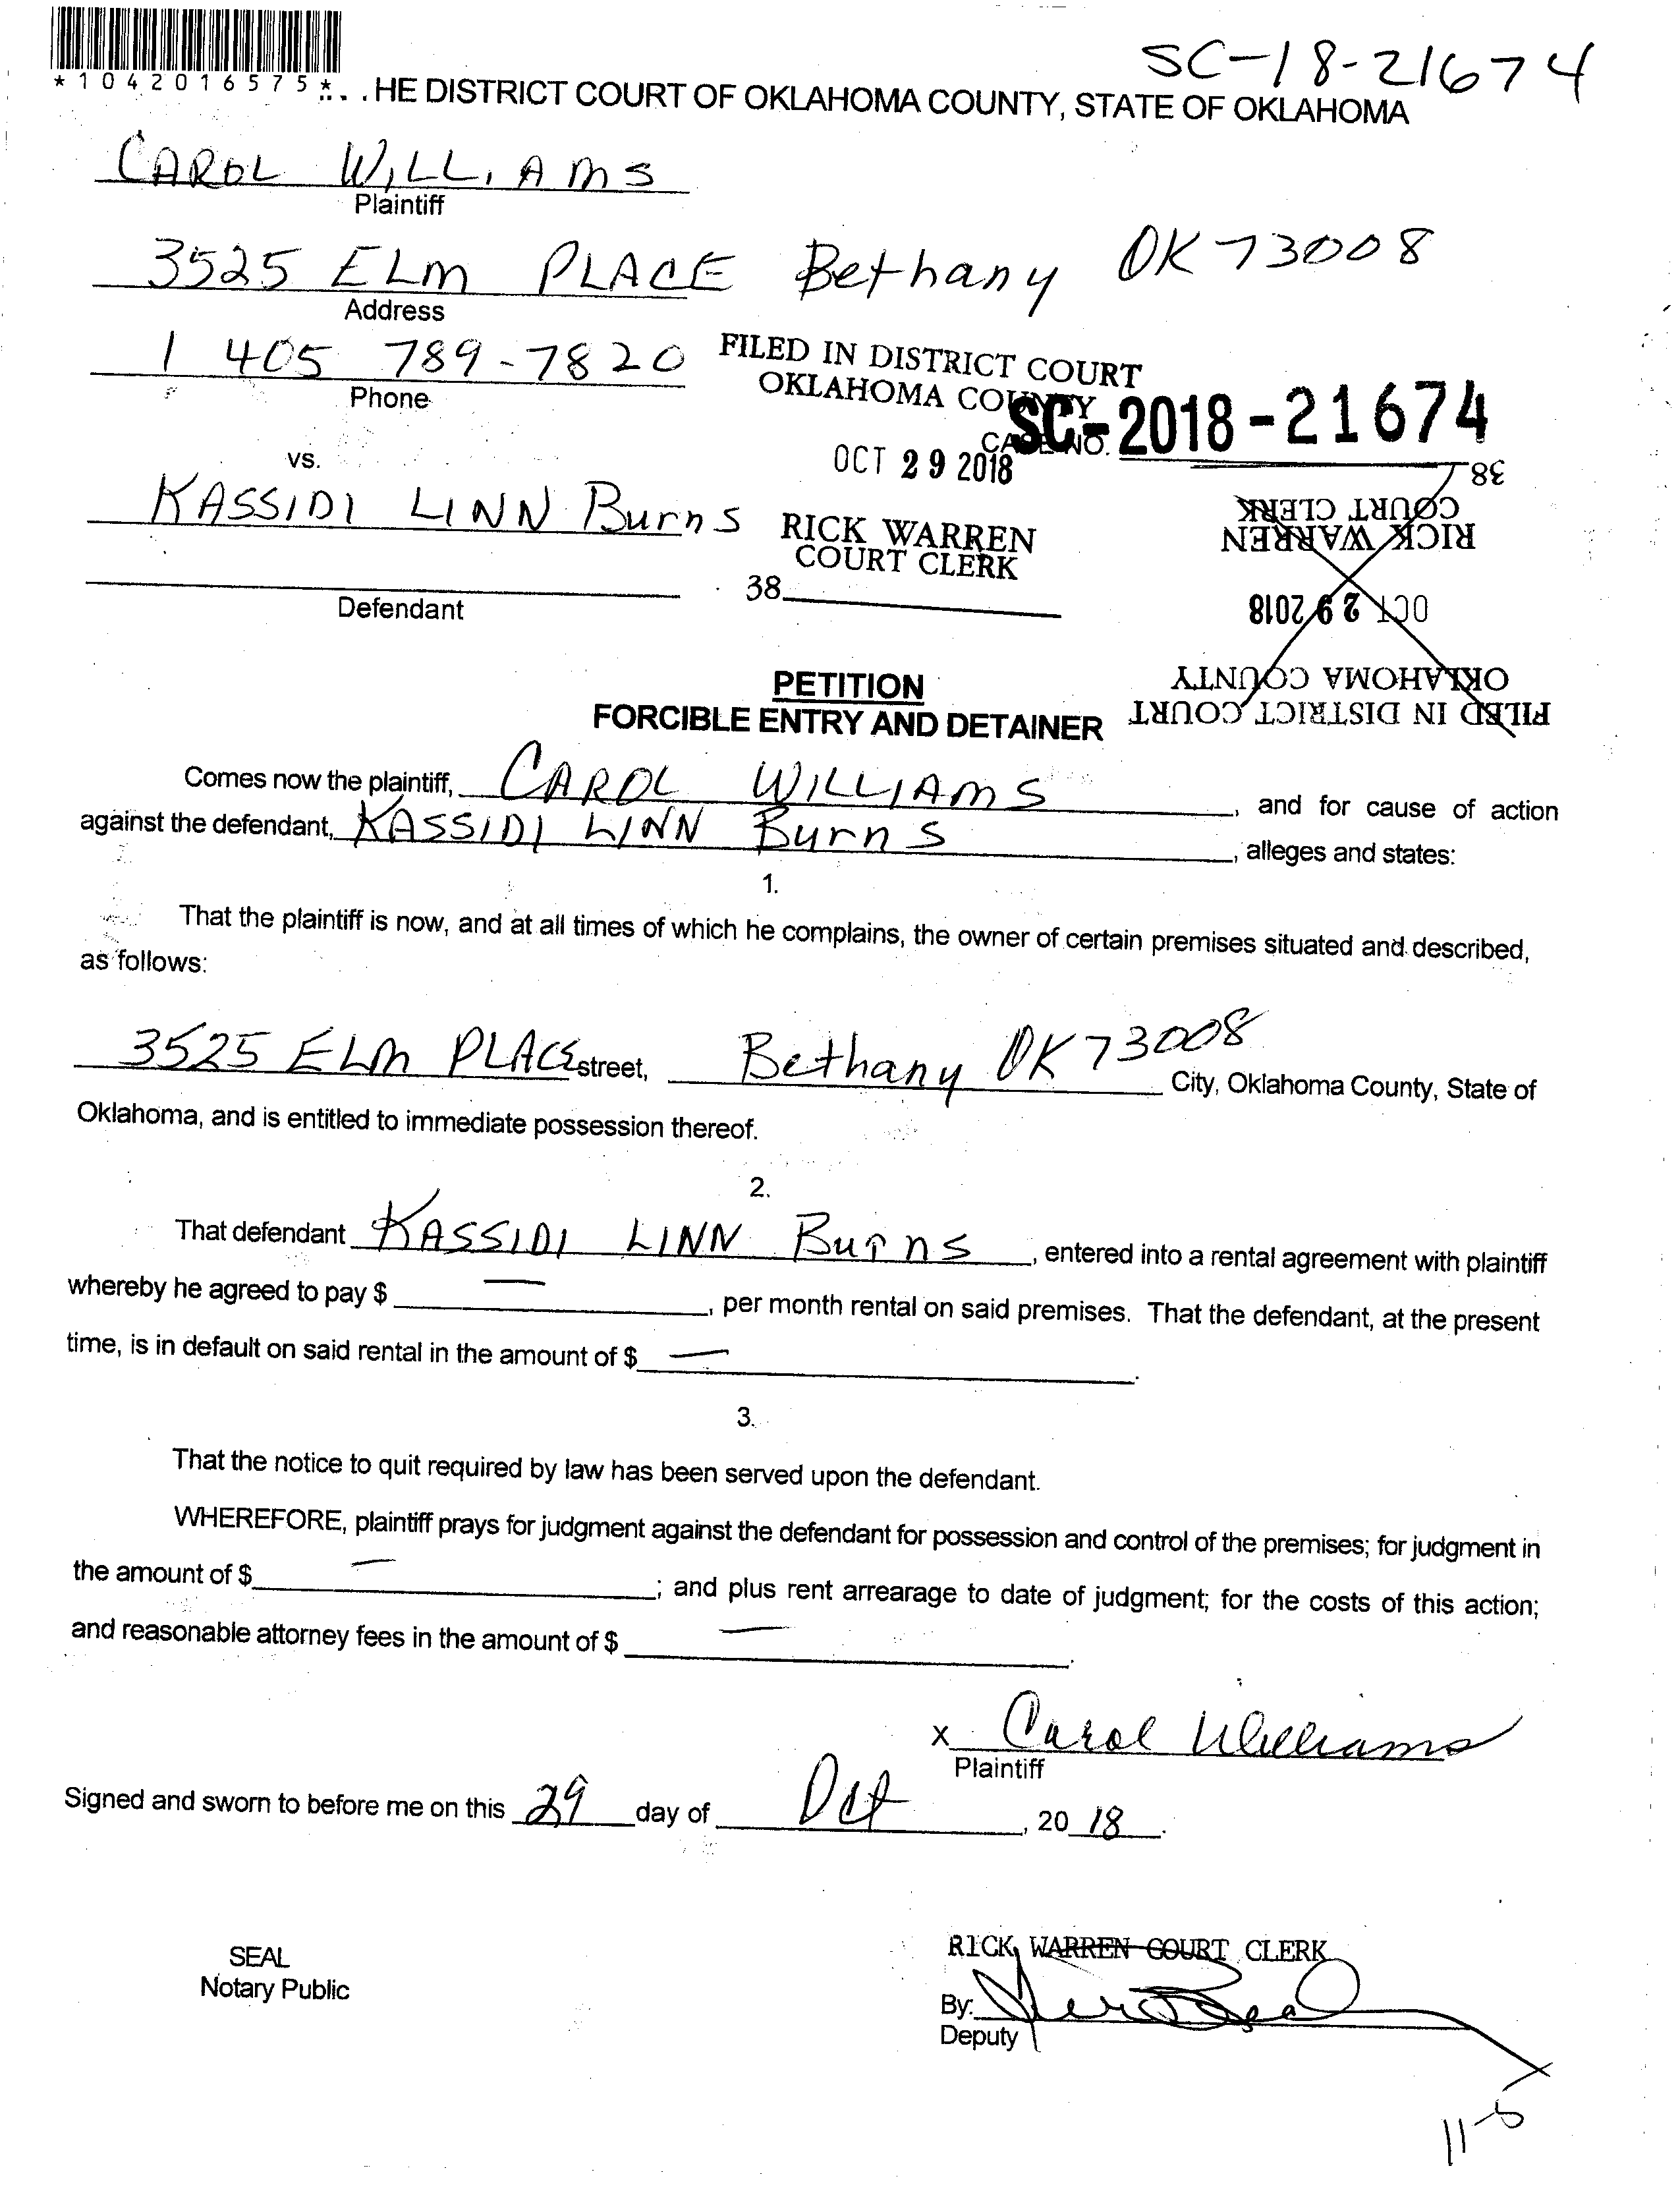 SC-18-21674
*1042016575*
HE DISTRICT COURT OF OKLAHOMA COUNTY, STATE OF OKLAHOMA
CAROL WILLIAMS
Plaintiff
3525 ELM PLACE Bethany OK 73008
Address
1 405 789-7820
Phone
FILED IN DISTRICT COURT
OKLAHOMA COUNTY
CASE NO. SC-2018-21674
OCT 29 2018
vs.
KASSIDI LINN Burns
RICK WARREN
COURT CLERK
38
Defendant
FILED IN DISTRICT COURT
OKLAHOMA COUNTY
OCT 29 2018
RICK WARREN
COURT CLERK
38
PETITION
FORCIBLE ENTRY AND DETAINER
Comes now the plaintiff, CAROL WILLIAMS, and for cause of action
against the defendant, KASSIDI LINN Burns, alleges and states:
1.
That the plaintiff is now, and at all times of which he complains, the owner of certain premises situated and described,
as follows:
3525 ELM PLACE street, Bethany OK 73008 City, Oklahoma County, State of
Oklahoma, and is entitled to immediate possession thereof.
2.
That defendant KASSIDI LINN Burns, entered into a rental agreement with plaintiff
whereby he agreed to pay $ —, per month rental on said premises. That the defendant, at the present
time, is in default on said rental in the amount of $ —.
3.
That the notice to quit required by law has been served upon the defendant.
WHEREFORE, plaintiff prays for judgment against the defendant for possession and control of the premises; for judgment in
the amount of $ —; and plus rent arrearage to date of judgment; for the costs of this action;
and reasonable attorney fees in the amount of $ —.
x Carol Williams
Plaintiff
Signed and sworn to before me on this 29 day of Oct, 2018.
SEAL
Notary Public
RICK WARREN COURT CLERK
By:
Deputy
11-5